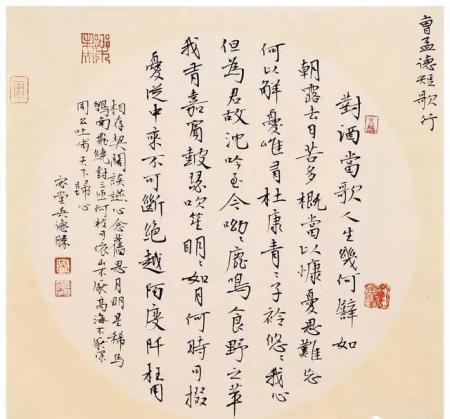 曹孟德短歌行
對酒當歌人生幾何譬如
朝露去日苦多概當以慷憂思難忘
何以解憂唯有杜康青〻子衿悠〻我心
但為君故沈吟至今呦〻鹿鳴食野之苹
我有嘉賓鼓瑟吹笙明〻如月何時可掇
憂從中來不可斷絕越陌度阡枉用
相存契闊談讌心念舊恩月明星稀烏
鵲南飛繞樹三匝何枝可依山不厭高海不厭深
周公吐哺天下歸心